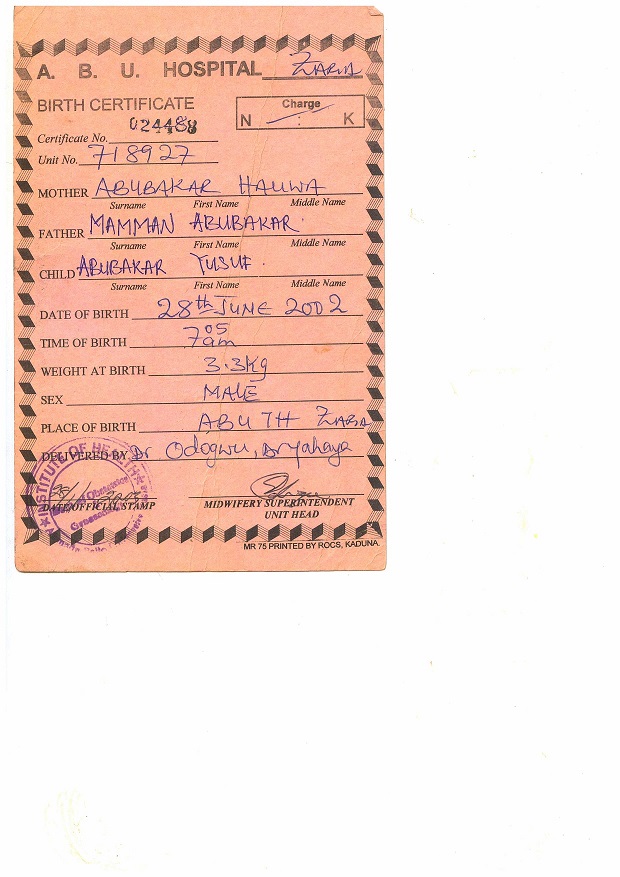 A. B. U. HOSPITAL ZARIA
BIRTH CERTIFICATE
Charge
N : K
Certificate No. 024488
Unit No. 718927
MOTHER ABUBAKAR HAUWA
Surname First Name Middle Name
FATHER MAMMAN ABUBAKAR
Surname First Name Middle Name
CHILD ABUBAKAR YUSUF
Surname First Name Middle Name
DATE OF BIRTH 28th JUNE 2002
TIME OF BIRTH 7 05 am
WEIGHT AT BIRTH 3.3Kg
SEX MALE
PLACE OF BIRTH ABUTH ZARIA
DELIVERED BY Dr Odogwu, Dr Yahaya
INSTITUTE OF HEALTH
DATE/OFFICIAL STAMP
MIDWIFERY SUPERINTENDENT
UNIT HEAD
MR 75 PRINTED BY ROCS, KADUNA.